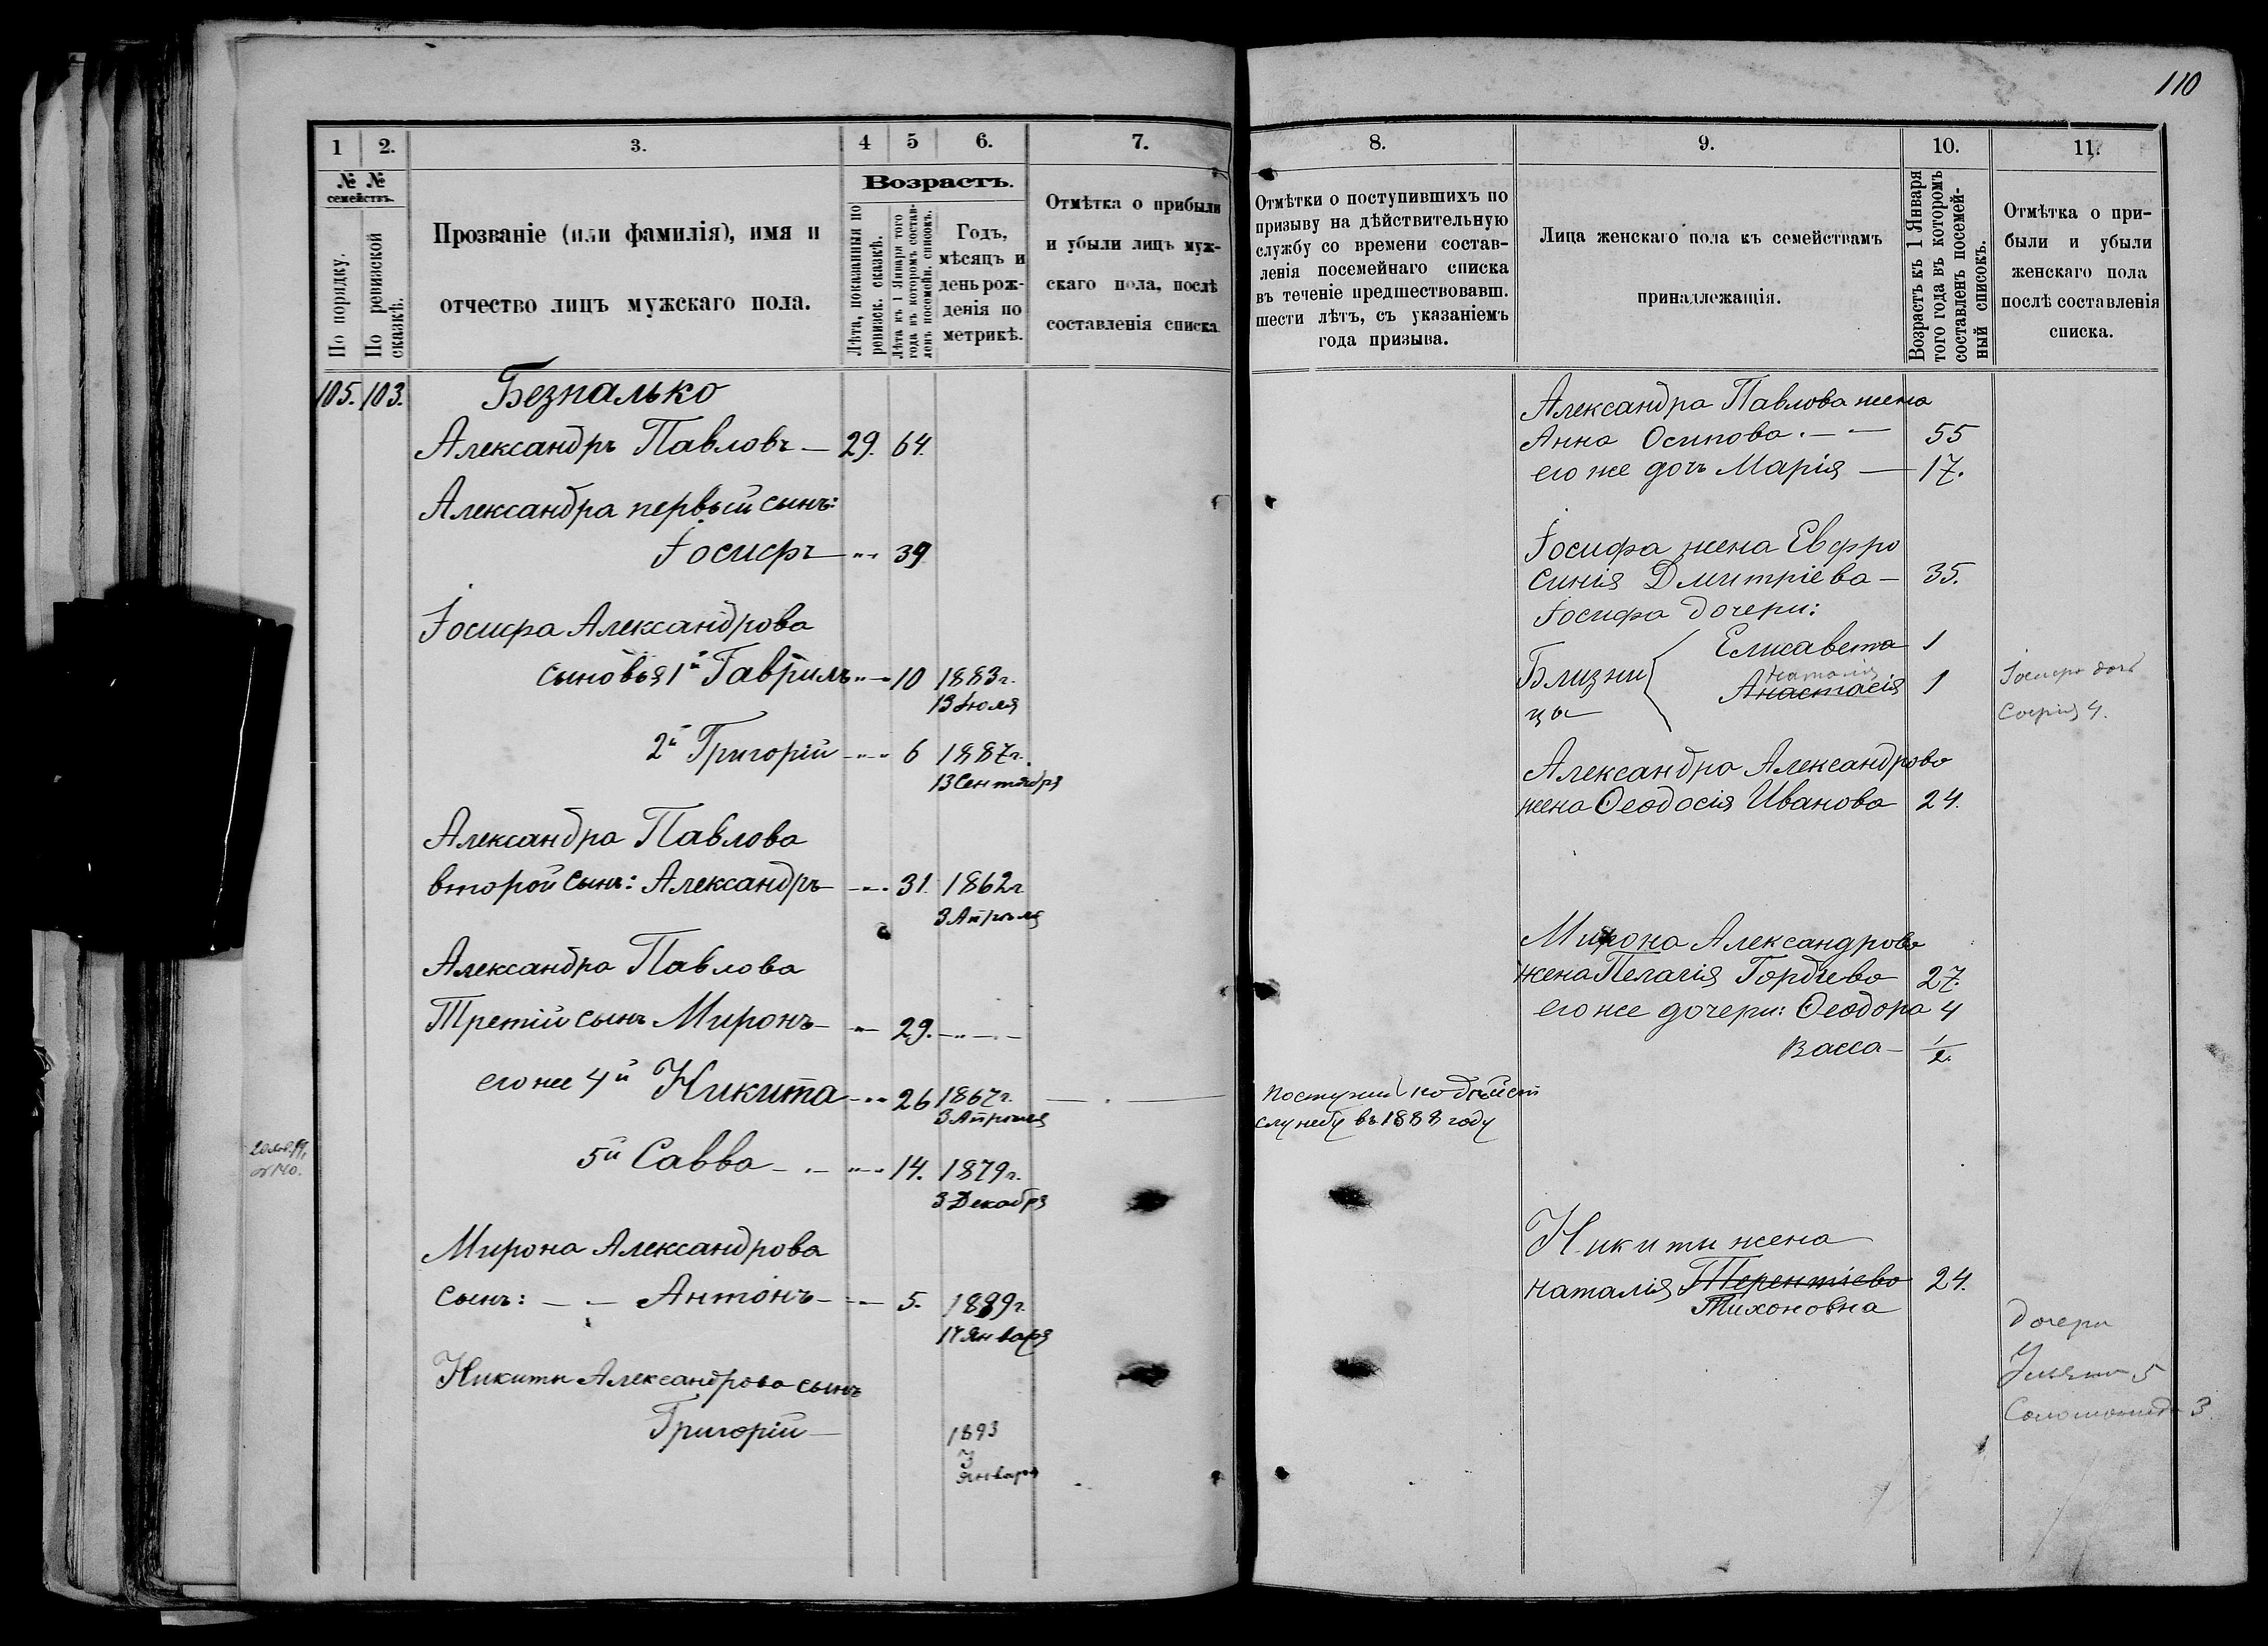 110
1
2.
3.
4
5
6.
7.
№ №
семействъ.
По порядку.
По ревизской
сказкѣ.
Прозваніе (или фамилія), имя и
отчество лицъ мужскаго пола.
Возрастъ.
Лѣта, показанныя по
ревизск. сказкѣ.
Лѣта къ 1 Января того
года въ которомъ состав-
ленъ посемейн. списокъ.
Годъ,
мѣсяцъ и
день рож-
денія по
метрикѣ.
Отмѣтка о прибыли
и убыли лицъ муж-
скаго пола, послѣ
составленія списка
105. 103. Безпалько
Александръ Павловъ — 29. 64.
Александра первый сынъ:
Іосифъ — 39
Іосифа Александрова
сыновья 1й Гаврилъ — 10 1883г.
13 Іюля
2й Григорій — 6 1887г.
13 Сентября
Александра Павлова
второй сынъ: Александръ — 31. 1862г
3 Апрѣля
Александра Павлова
Третій сынъ Миронъ — 29.
его же 4й Никита — 26 1867г.
3 Апрѣля
5й Савва — 14. 1879г.
3 Декабря
Мирона Александрова
сынъ: — Антонъ — 5. 1889г
17 Января
Никиты Александрова сынъ
Григорій —
1893
Января
8.
9.
10.
11.
Отмѣтки о поступившихъ по
призыву на дѣйствительную
службу со времени состав-
ленія посемейнаго списка
въ теченіе предшествовавш.
шести лѣтъ, съ указаніемъ
года призыва.
Лица женскаго пола къ семействамъ
принадлежащія.
Возрастъ къ 1 Января
того года въ которомъ
составленъ посемей-
ный списокъ.
Отмѣтка о при-
были и убыли
женскаго пола
послѣ составленія
списка.
Александра Павлова жена
Анна Осипова — 55
его же дочь Марія — 17.
Іосифа жена Евфро
синія Дмитріева — 35.
Іосифа дочери:
Елисавета 1
Близни
цы
Наталія
Анастасія 1
Іосифа дочь
Софія 4.
Александра Александрова
жена Ѳеодосія Иванова 24.
Мирона Александрова
жена Пелагія Гордіева 27.
его же дочери: Ѳеодора 4
Васса — 1/2
поступил на дѣйст
службу въ 1888 году
Никиты жена
Наталія Терентіева 24.
Тихоновна
дочери
5
3